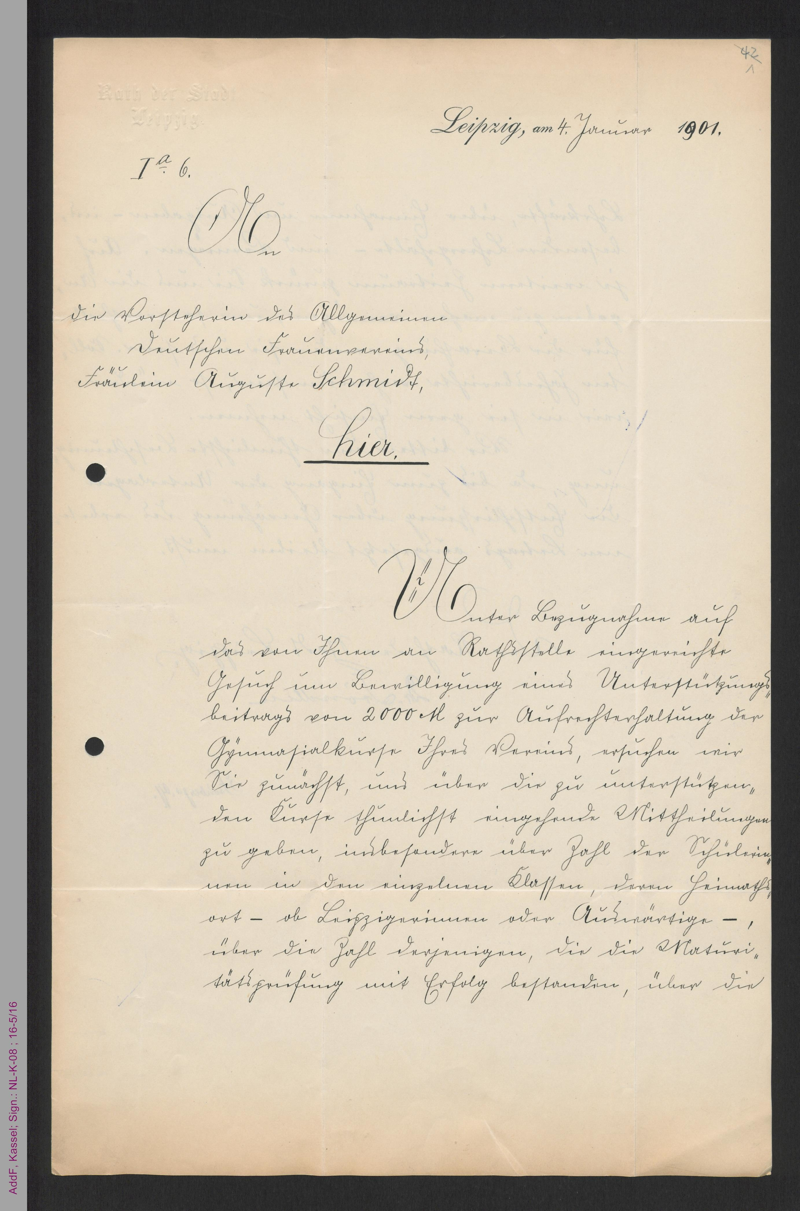 42
Rath der Stadt
Leipzig
Leipzig, am 4. Januar 1901.
Ia. 6.
An
die Vorsteherin des Allgemeinen
Deutschen Frauenvereins,
Fräulein Auguste Schmidt,
hier.
Unter Bezugnahme auf
das von Ihnen an Rathsstelle eingereichte
Gesuch um Bewilligung eines Unterstützungs„
beitrags von 2000 M zur Aufrechterhaltung der
Gymnasialkurse Ihres Vereins, ersuchen wir
Sie zunächst, uns über die zu unterstützen„
den Kurse thunlichst eingehende Mittheilungen
zu geben, insbesondere über Zahl der Schülerin„
nen in den einzelnen Klassen, deren Heimaths„
ort – ob Leipzigerinnen oder Auswärtige –,
über die Zahl derjenigen, die die Maturi„
tätsprüfung mit Erfolg bestanden, über die
AddF, Kassel; Sign.: NL-K-08 ; 16-5/16